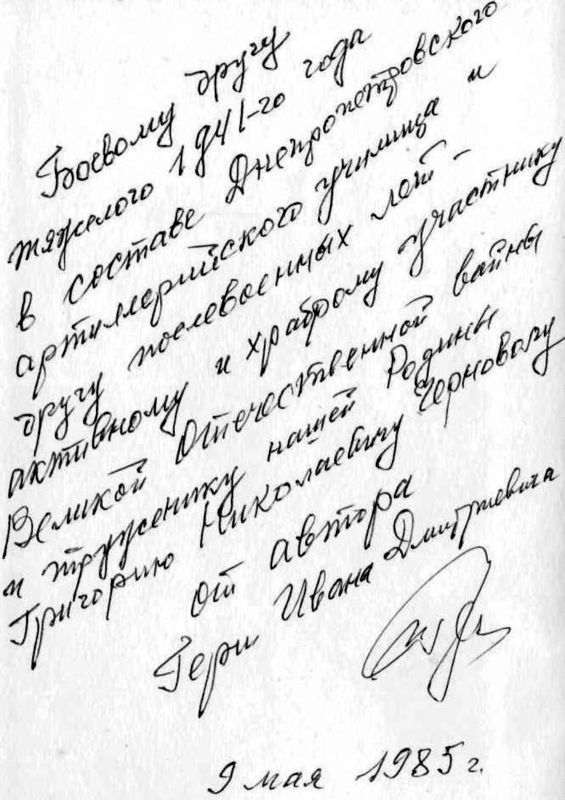 Боевому другу
тяжелого 1941-го года
в составе Днепропетровского
артиллерийского училища и
другу послевоенных лет -
активному и храброму участнику
Великой Отечественной вайны
и труженику нашей Родины
Григорию Николаевичу Чернову
от автора
Гери Ивана Дмитриевича
9 мая 1985 г.